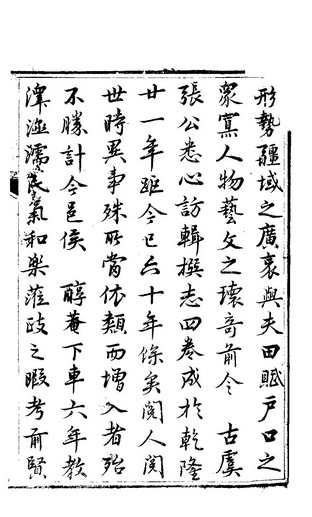 形勢疆域之廣袤與夫田賦戶口之
眾寡人物藝文之瓌奇前令 古虞
張公悉心訪輯撰志四卷成於乾隆
廿一年距今已六十年餘矣閱人閱
世時異事殊所當依類而增入者殆
不勝計今邑侯 醇菴下車六年教
澤濡民氣和樂蒞政之暇考前賢